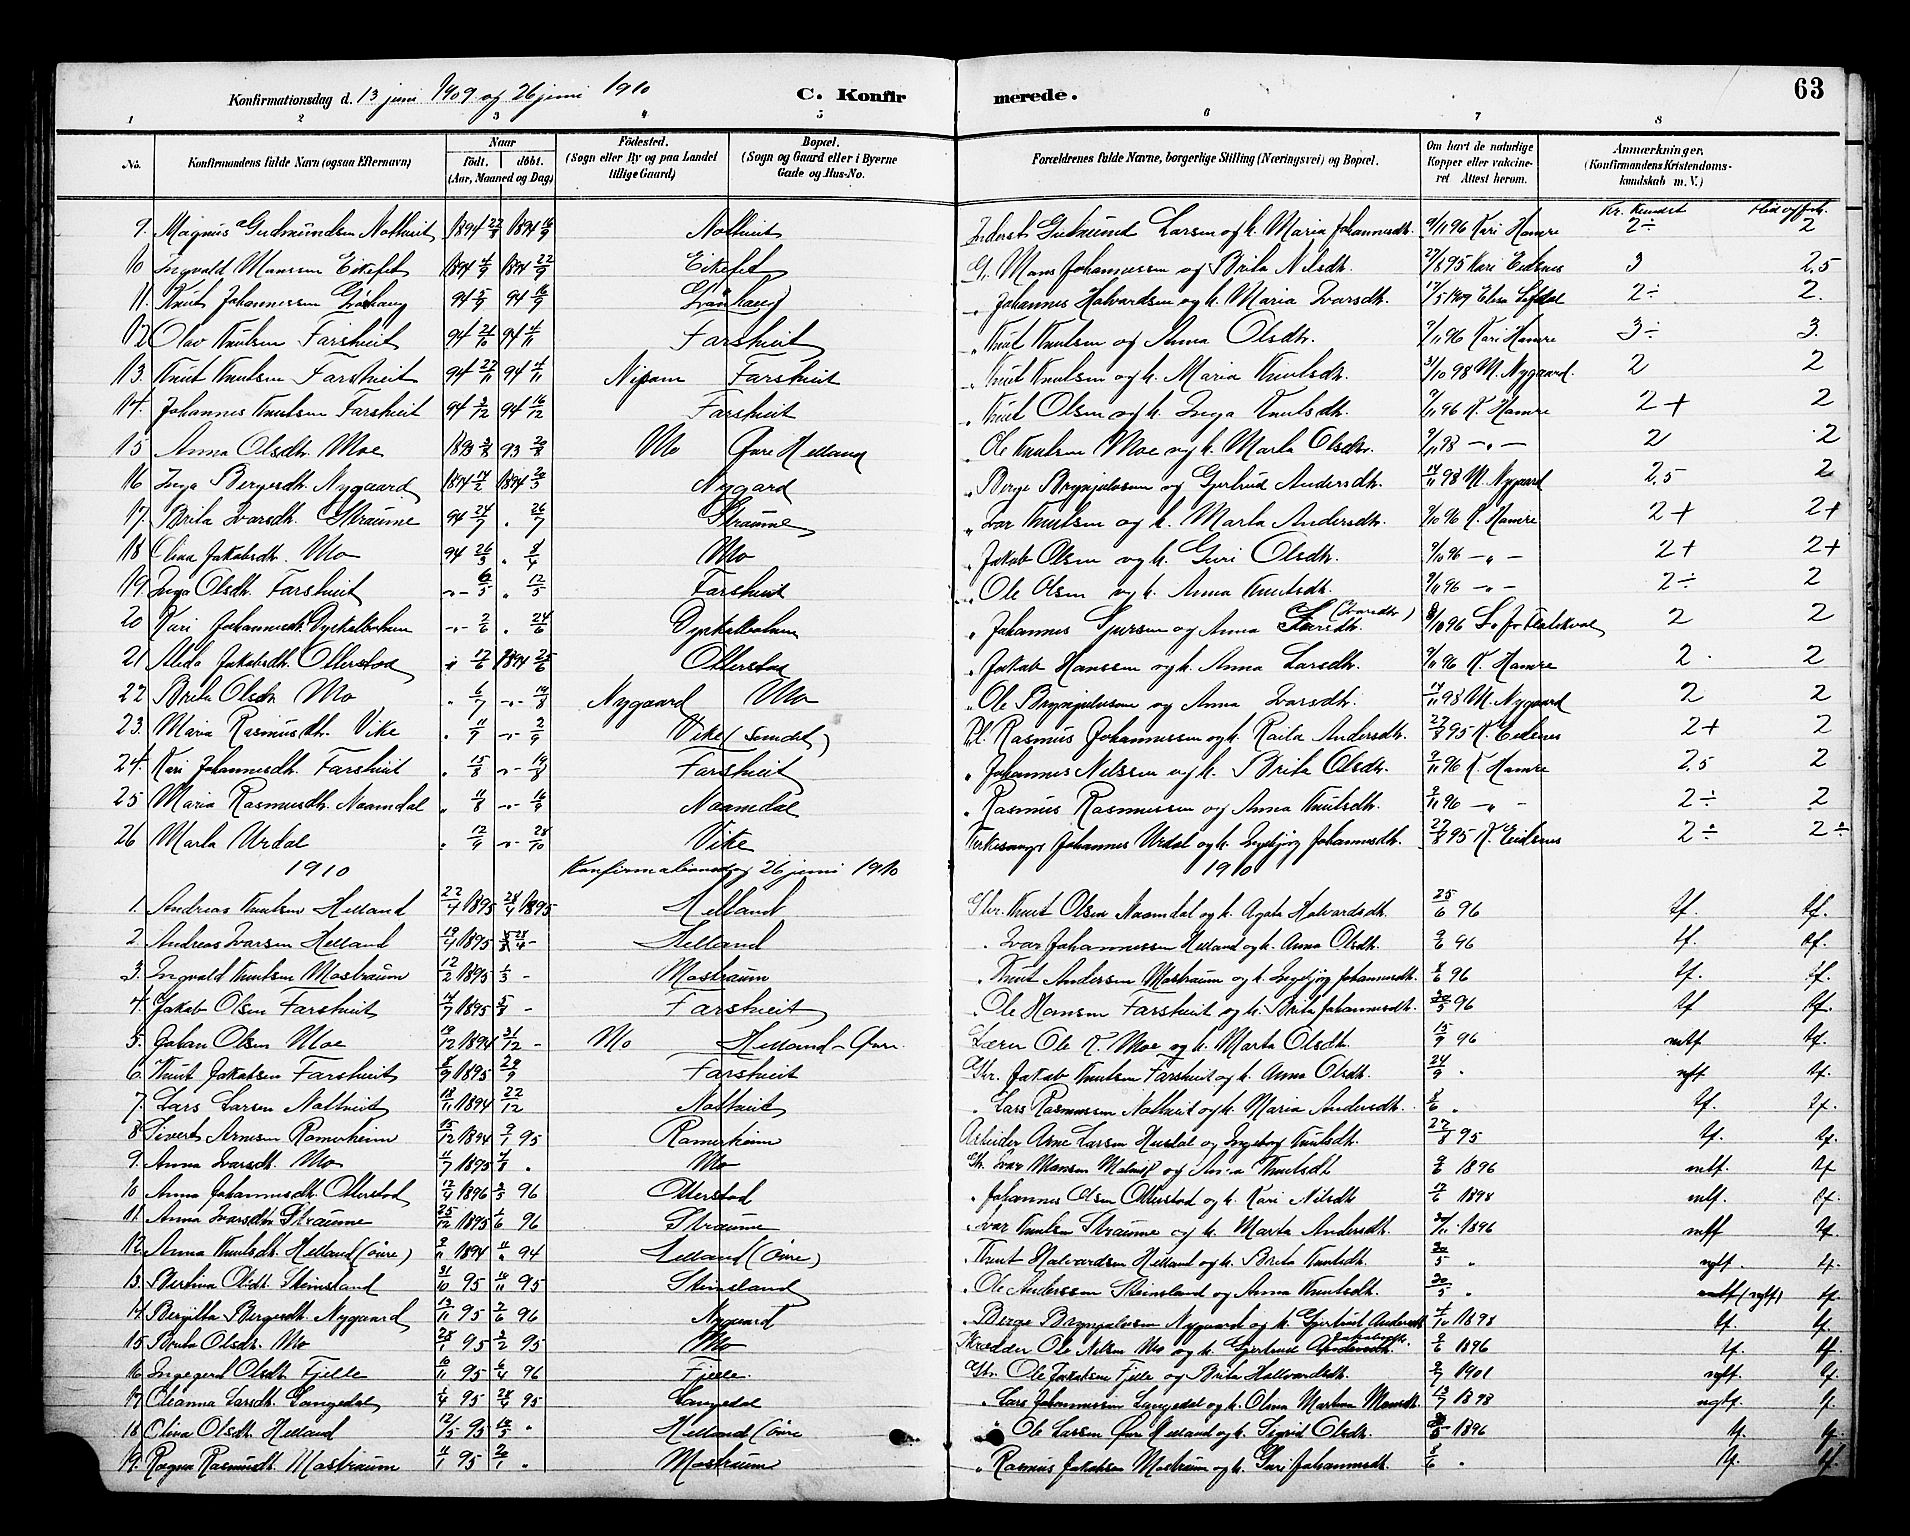 Konfirmationsdag d. 13 juni 1909 og 26 juni 1910 C. Konfirmerede. 63
1 2 3 4 5 6 7 8
No. Konfirmandens fulde Navn (ogsaa Efternavn) Naar født. døbt. (Aar, Maaned og Dag) Fødested. (Sogn eller By og paa Landet tillige Gaard) Bopæl. (Sogn og Gaard eller i Byerne Gade og Hus-No. Forældrenes fulde Navne, borgerlige Stilling (Næringsvei) og Bopæl. Om havt de naturlige Kopper eller vakcineret. Attest herom. Anmærkninger, (Konfirmandens Kristendomskundskab m. V.)
Kr. kundsk. Flid og forh.
9. Magnus Gudmundsen Nothveit 1894 1894 16/9 Nothveit Gudmund Larsen og h. Maria Johannesdtr. 9/11 96 Kari Hamre 2÷ 2
10 Ingvald Monssen Eikefet 1894 1894 22/9 Eikefet Mons Johannessen og Brita Nilsdtr. 27/8 95 Kari Eidsnes 3 2,5
11. Knut Johannessen 94 5/9 94 16/9 Johannes Halvardsen og h. Maria Ivarsdtr. 2÷ 2.
12 Olav Knutsen Farstveit 94 94 Farstveit Knut Knutsen og Anna Olsdtr. 9/11 96 Kari Hamre 3÷ 3.
13. Knut Knutsen Farstveit 94 94 Farstveit Knut Knutsen og h. Maria Knutsdtr. 31/10 98 M. Nygaard. 2 2
14. Johannes Knutsen Farstveit 94 94 16/12 Farstveit Knut Olsen og h. Inga Knutsdtr. 9/11 96 K. Hamre 2+ 2
15 Anna Olsdtr. Moe 1893 93 Mo Øvre Helland Ole Knutsen Moe og h. Marta Olsdtr. 9/11 98 — „ — 2 2
16 Inga Bergesdtr. Nygaard 1894 14/2 1894 Nygard Berge Brynjulvsen og Gjertrud Andersdtr. 14/11 98 M. Nygaard 2,5 2
17. Brita Ivarsdtr. Straume 94 24/7 „ 26/7 Straume Ivar Knutsen og h. Marta Andersdtr. K. Hamre 2+ 2+
18 Olina Jakobsdtr. Mo 94 26/3 „ 8/4 Mo Jakob Olsen og h. Guri Olsdtr. 9/11 96 — „ — 2+ 2+
19. Inga Olsdtr. Farstveit 6/5 „ 12/5 Farstveit Ole Olsen og h. Anna Knutsdtr. 9/11 96 — „ — 2÷ 2
20 Kari Johannesdtr. Dyrkolbotnen 2/6 „ 24/6 Dyrkolbotnen Johannes Sjursen og Anna (Ivarsdtr.) 2 2
21 Alida Jakobsdtr. Otterstad 17/6 1894 25/6 Otterstad Jakob Hanssen og h. Anna Larsdtr. 9/11 96 K. Hamre 2 2
22 Brita Olsdtr. Mo 6/7 19/8 Nygaard Mo Ole Brynjulvsen og Anna Ivarsdtr. 14/11 98 M. Nygaard 2 2
23. Maria Rasmusdtr. Vike 2/9 Vike Rasmus Johannessen og h. Raila Andersdtr. 27/8 95 K. Eidsnes 2+ 2
24. Kari Johannesdtr. Farstveit 15/8 19/8 Farstveit Johannes Nilssen og h. Brita Olsdtr. 9/11 96 K. Hamre 2,5 2
25 Maria Rasmusdtr. Naamdal 11/8 Naamdal Rasmus Rasmussen og Anna Knutsdtr. 9/11 96 — „ — 2÷ 2
26 Marta Urdal 12/9 28/10 Vike Kirkesanger Johannes Urdal og h. Ingebjørg Johannesdtr. 27/8 95 K. Eidsnes 2÷ 2÷
1910 Konfirmationsdag 26 juni 1910 1910
1. Andreas Knutsen Helland 22/4 1895 28/4 1895 Helland Gbr. Knut Olsen Naamdal og h. Agata Halvardsdtr. 25/6 96 tf. tf.
2. Andreas Ivarsen Helland 19/4 1895 28/4 – Helland Ivar Johannessen Helland og h. Anna Olsdtr. 9/6 96 tf. tf.
3. Ingvald Knutsen Mostraum 12/2 1895 1/3 – Mostraum Knut Andersen Mostraum og h. Ingebjørg Johannesdtr. 8/6 96 tf. tf.
4. Jakob Olsen Farstveit 14/7 1895 5/8 – Farstveit Ole Hansen Farstveit og h. Brita Johannesdtr. 20/5 96 tf tf.
5. Johan Olsen Moe 12 1894 31/12 – Mo Helland – Øvre. Lærer Ole K. Moe og h. Marta Olsdtr. 15/9 96 mtf tf.
6. Knut Jakobsen Farstveit 8/9 1895 29/9 Farstveit Gbr. Jakob Knutsen Farstveit og h. Anna Olsdtr. 24/9 „ tf.
7. Lars Larsen Nothveit 18/11 1894 22/12 Nothveit Lars Rasmussen Nothveit og h. Maria Andersdtr. „ tf. tf.
8 Sivert Arnesen Romerheim 15/12 1894 95 Romerheim Arbeider Arne Larsen og Ingeborg Knutsdtr. 27/8 95 tf. tf.
9. Anna Ivarsdtr. Mo 1895 „ Mo Ivar Monsen og Knutsdtr 9/6 1896 mtf. tf
10 Anna Johannesdtr. Otterstad 1896 96 Otterstad Johannes Olsen Otterstad og h. Kari Nilsdtr 17/6 1898 mtf. tf.
11. Anna Ivarsdtr. Straume 25/12 1895 1/6 96 Straume Ivar Knutsen Straume og h. Marta Andersdtr. 1896 mtf tf.
12. Anna Knutsdtr. Helland (øvre) 1894 94 Helland (øvre) Knut Halvardsen Helland og h. Brita Knutsdtr. 20/5 „ tf.
13. Bertina Olsdtr. Steinsland 31/10 95 95 Steinsland Ole Anderssen Steinsland og Anna Knutsdtr. 20/5 „ tf.
14. Bergitta Bergesdtr. Nygaard 13/11 95 2/6 96 Nygaard Berge Brynjulvsen Nygaard og h. Gjertrud Andersdtr 1898 tf. tf.
15. Brita Olsdtr. Mo 28/1 95 2/2 95 Mo Skrædder Ole Nilsen Mo og h. Gjertrud 9/6 1896 tf tf.
16. Ingegerd Olsdtr. Fjelle 95 6/4 96 Fjelle. Gbr. Ole Jakobsen Fjelle og Brita Hallvardsdtr. 1901 tf.
17. Elianna Larsdtr. Langedal 1/4 95 28/4 95 Langedal Lars Johannessen Langedal og h. Olina Martina Monsdtr. 1898 tf.
18 Elina Olsdtr. Helland 12/5 95 „ Helland (øvre Ole Larsen Øvre Helland og h. Sigrid Olsdtr. 1896 tf. tf.
19. Ragna Rasmusdtr. Mostraum 11/1 95 „ Mostraum Rasmus Jakobsen Mostraum og h. Guri Johannesdtr. 8/6 „ tf. tf.